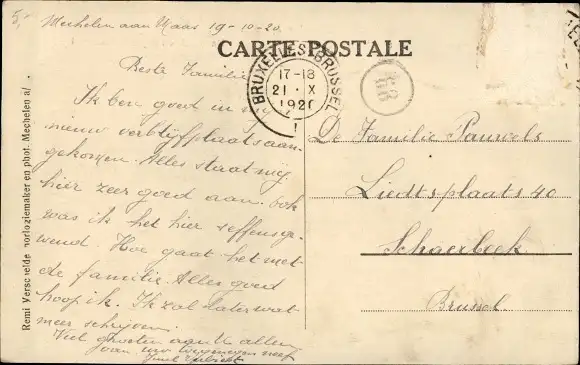 5,-
Mechelen aan Maas 19-10-20
CARTE POSTALE
Beste Familie
Ik ben goed in
nieuw verblijfplaats aan-
gekomen. Alles staat mij
hier zeer goed aan. ook
was ik het hier seffens ge-
wend. Hoe gaat het met
de familie. Alles goed
hoop ik. Ik zal later wat
meer schrijven.
Veel groeten aan U allen
van uw toegenegen neef
BRUXELLES BRUSSEL
17-18
21 X
1920
1
De Familie Pauwels
Liedtsplaats 40
Schaerbeek
Brussel.
Remi Verschelde horlogiemaker en phot. Mechelen a/